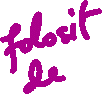 folosit
de